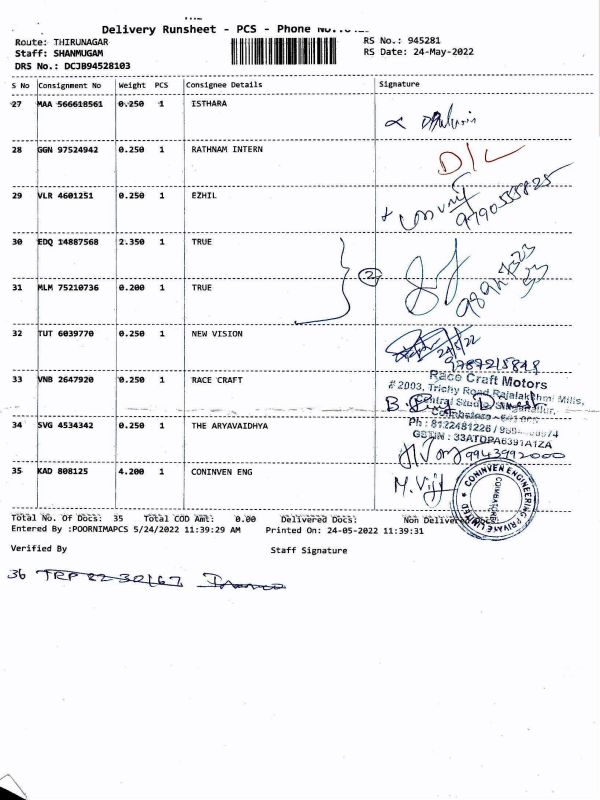 Delivery Runsheet - PCS - Phone
Route: THIRUNAGAR
RS No.: 945281
Staff: SHANMUGAM
RS Date: 24-May-2022
DRS No.: DCJB94528103
S No Consignment No Weight PCS Consignee Details Signature
27 MAA 566618561 0.250 1 ISTHARA
28 GGN 97524942 0.250 1 RATHNAM INTERN D/L
29 VLR 4601251 0.250 1 EZHIL
9790555825
30 EDQ 14887568 2.350 1 TRUE
2
31 MLM 75210736 0.200 1 TRUE
32 TUT 6039770 0.250 1 NEW VISION
24/5/22
9787215848
33 VNB 2647920 0.250 1 RACE CRAFT
Race Craft Motors
# 2003, Trichy Road, Rajalakshmi Mills,
Central Studio, Singanallur,
Coimbatore
34 SVG 4534342 0.250 1 THE ARYAVAIDHYA
Ph : 8122481226
GSTIN : 33ATDPA6391A1ZA
9943992000
35 KAD 808125 4.200 1 CONINVEN ENG
M. Vijy
CONINVEN ENGINEERING PRIVATE LIMITED
COIMBATORE
Total No. Of Docs: 35 Total COD Amt: 0.00 Delivered Docs: Non Delivered Docs:
Entered By :POORNIMAPCS 5/24/2022 11:39:29 AM Printed On: 24-05-2022 11:39:31
Verified By Staff Signature
36 TRP 82 30167